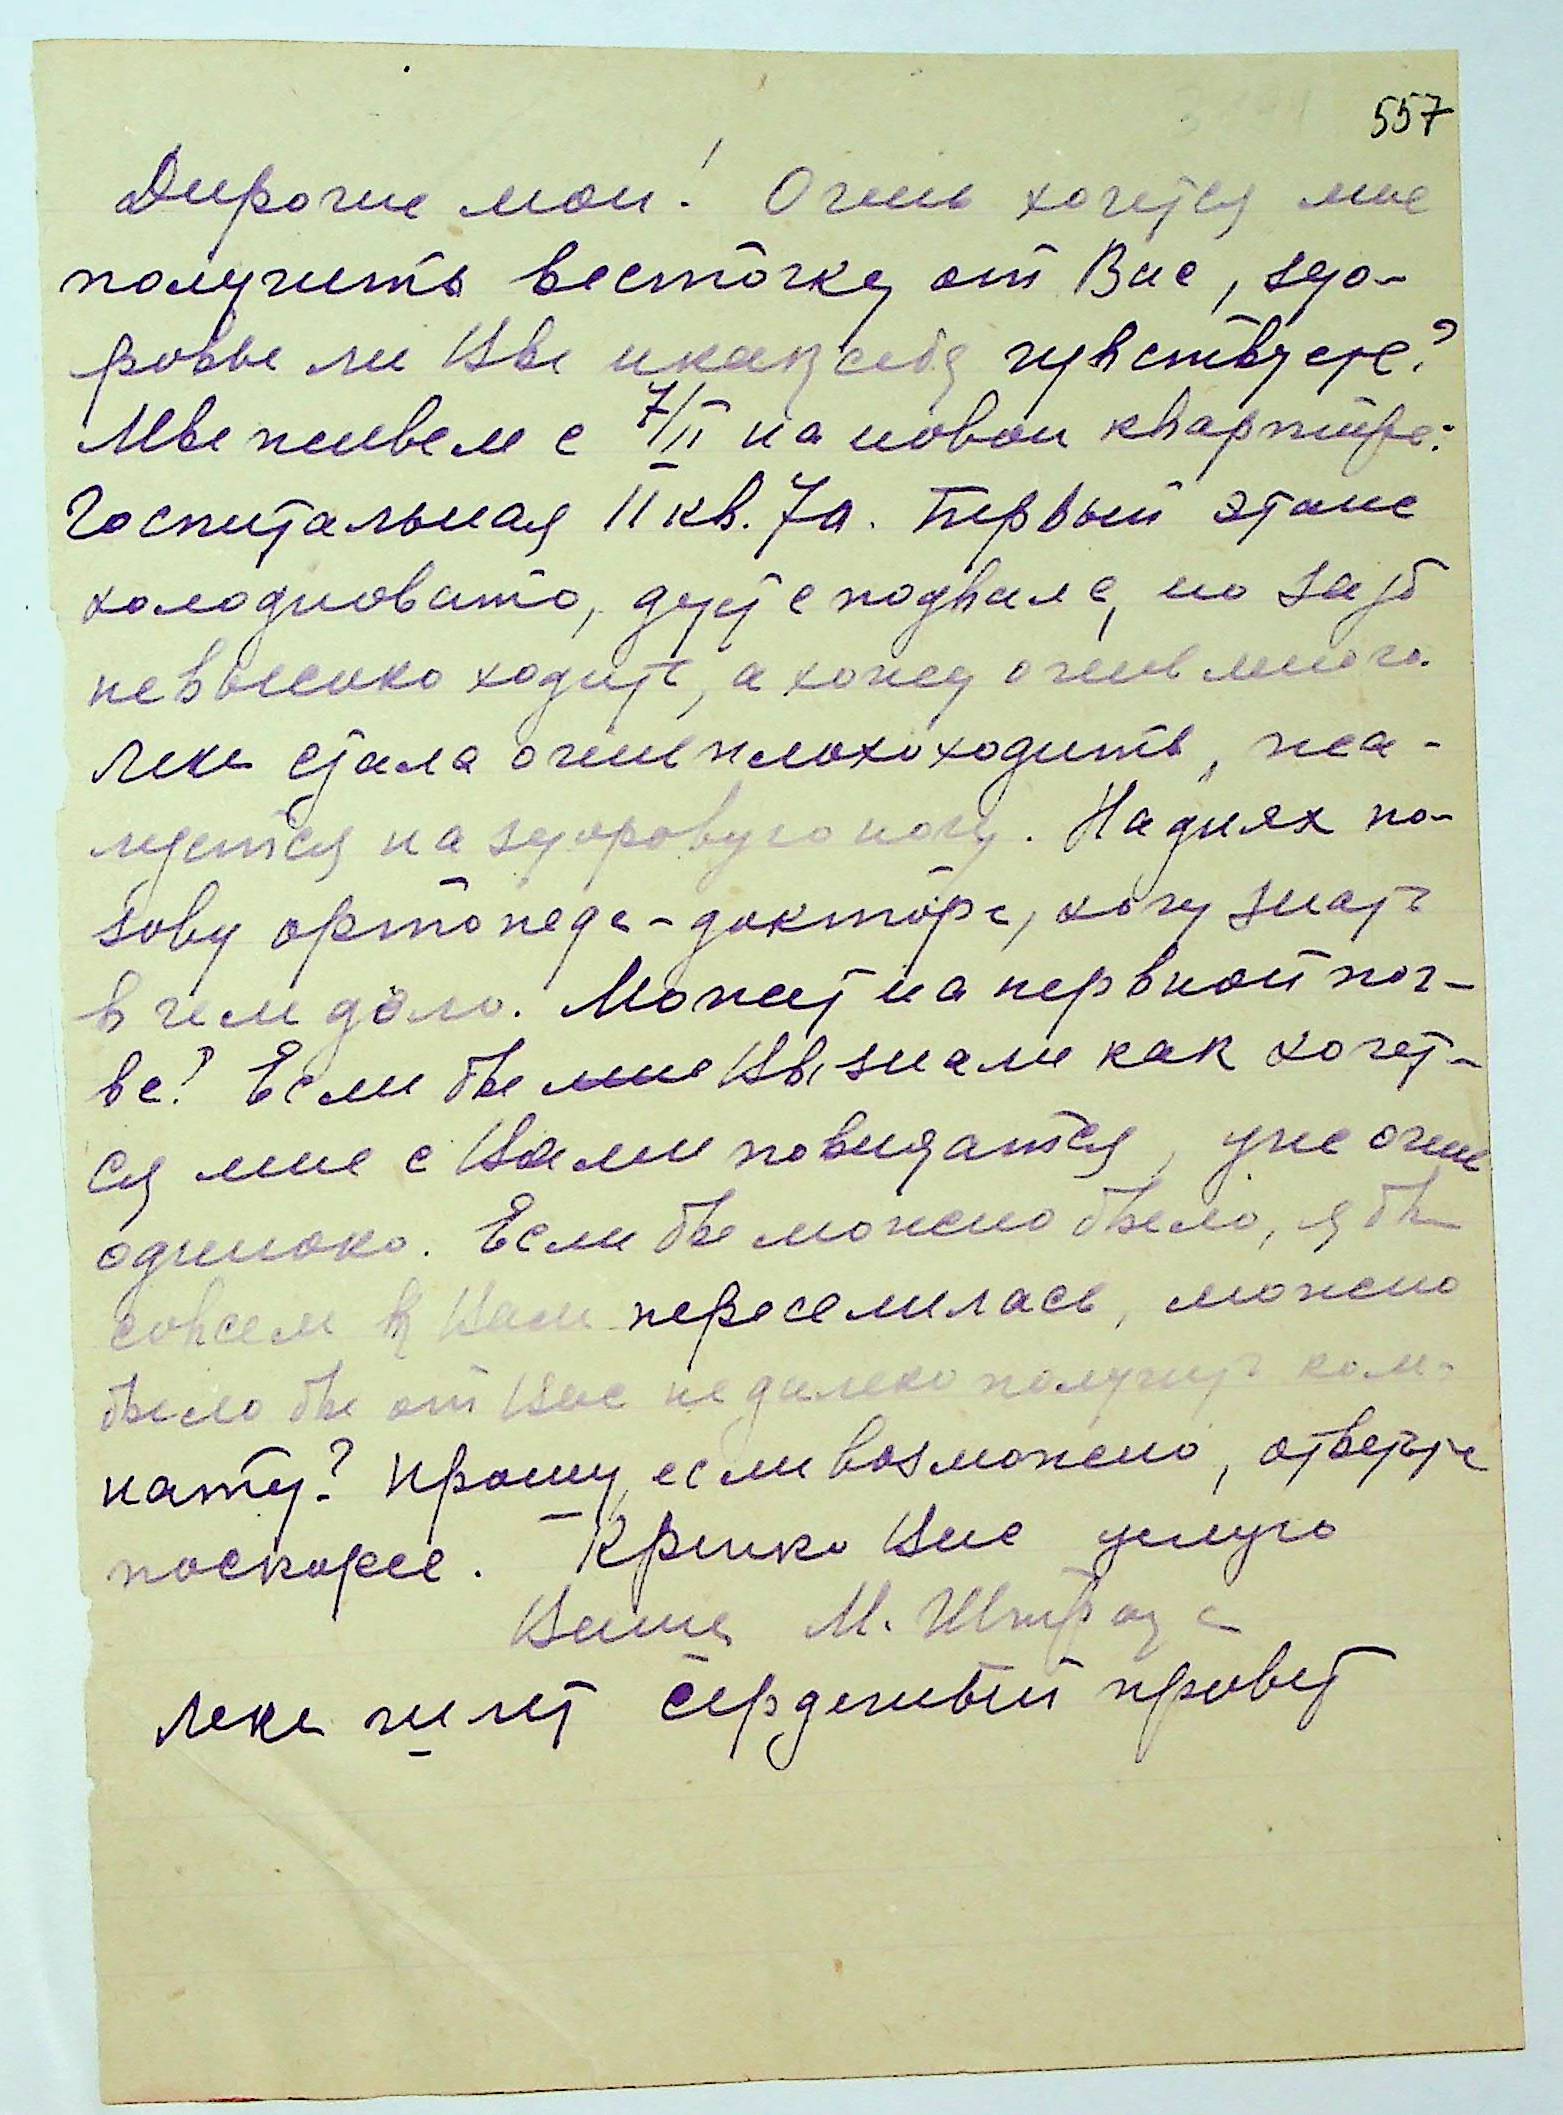 557
Дорогие мои! Очень хочется мне
получить весточку от Вас, здо-
ровы ли Вы и как себя чувствуете?
Мы живем с 7/II на новой квартире:
Госпитальная 11 кв. 7а. Первый этаж
холодновато, дует с подвала, но зато
не высоко ходить, а хожу очень много.
Лека стала очень плохо ходить, жа-
луется на здоровую ногу. На днях по-
зову ортопеда-доктора, хочу знать
в чем дело. Может на нервной поч-
ве? Если бы мне Вы знали как хочет-
ся мне с Вами повидаться, уже очень
одиноко. Если бы можно было, я бы
совсем к Вам переселилась, можно
было бы от Вас недалеко получить ком-
нату? Прошу, если возможно, ответьте
поскорее. Крепко Вас целую
Ваша М. Штраус
Лека шлет сердечный привет